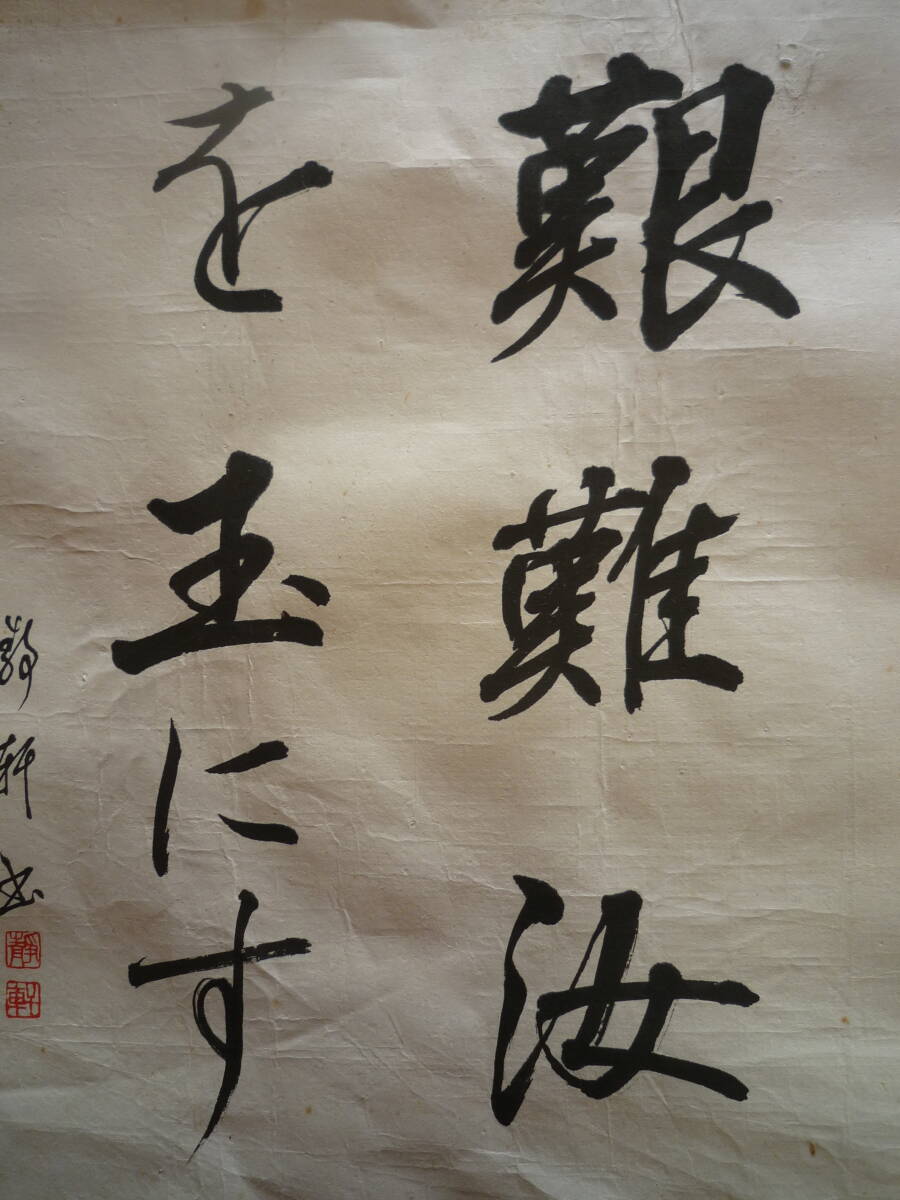 艱難汝
を玉にす
静軒書
靜軒